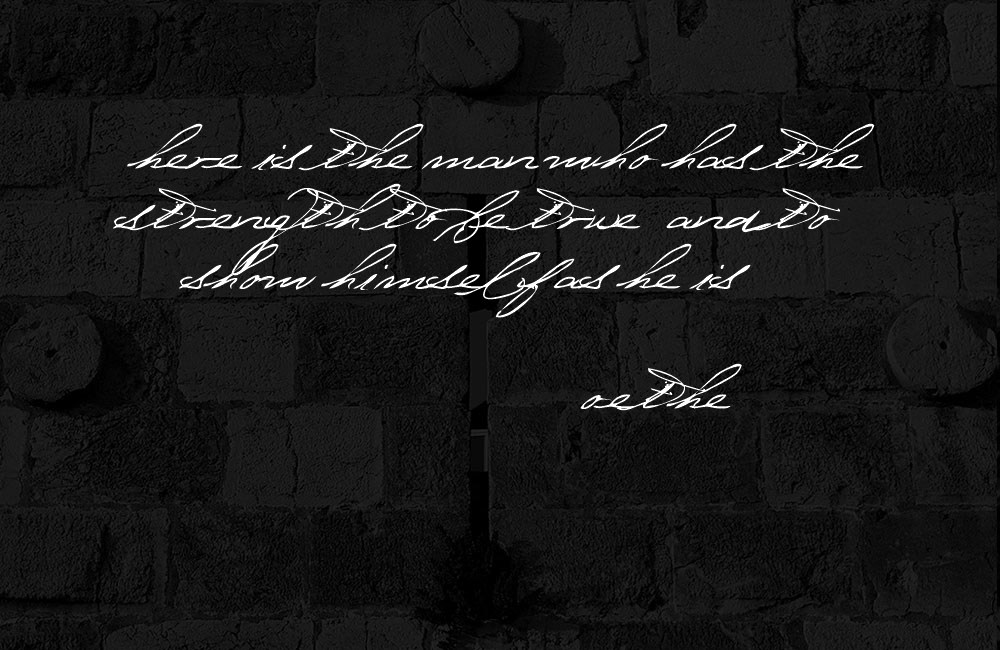 here is the man who has the
strength to be true and to
show himself as he is
oethe